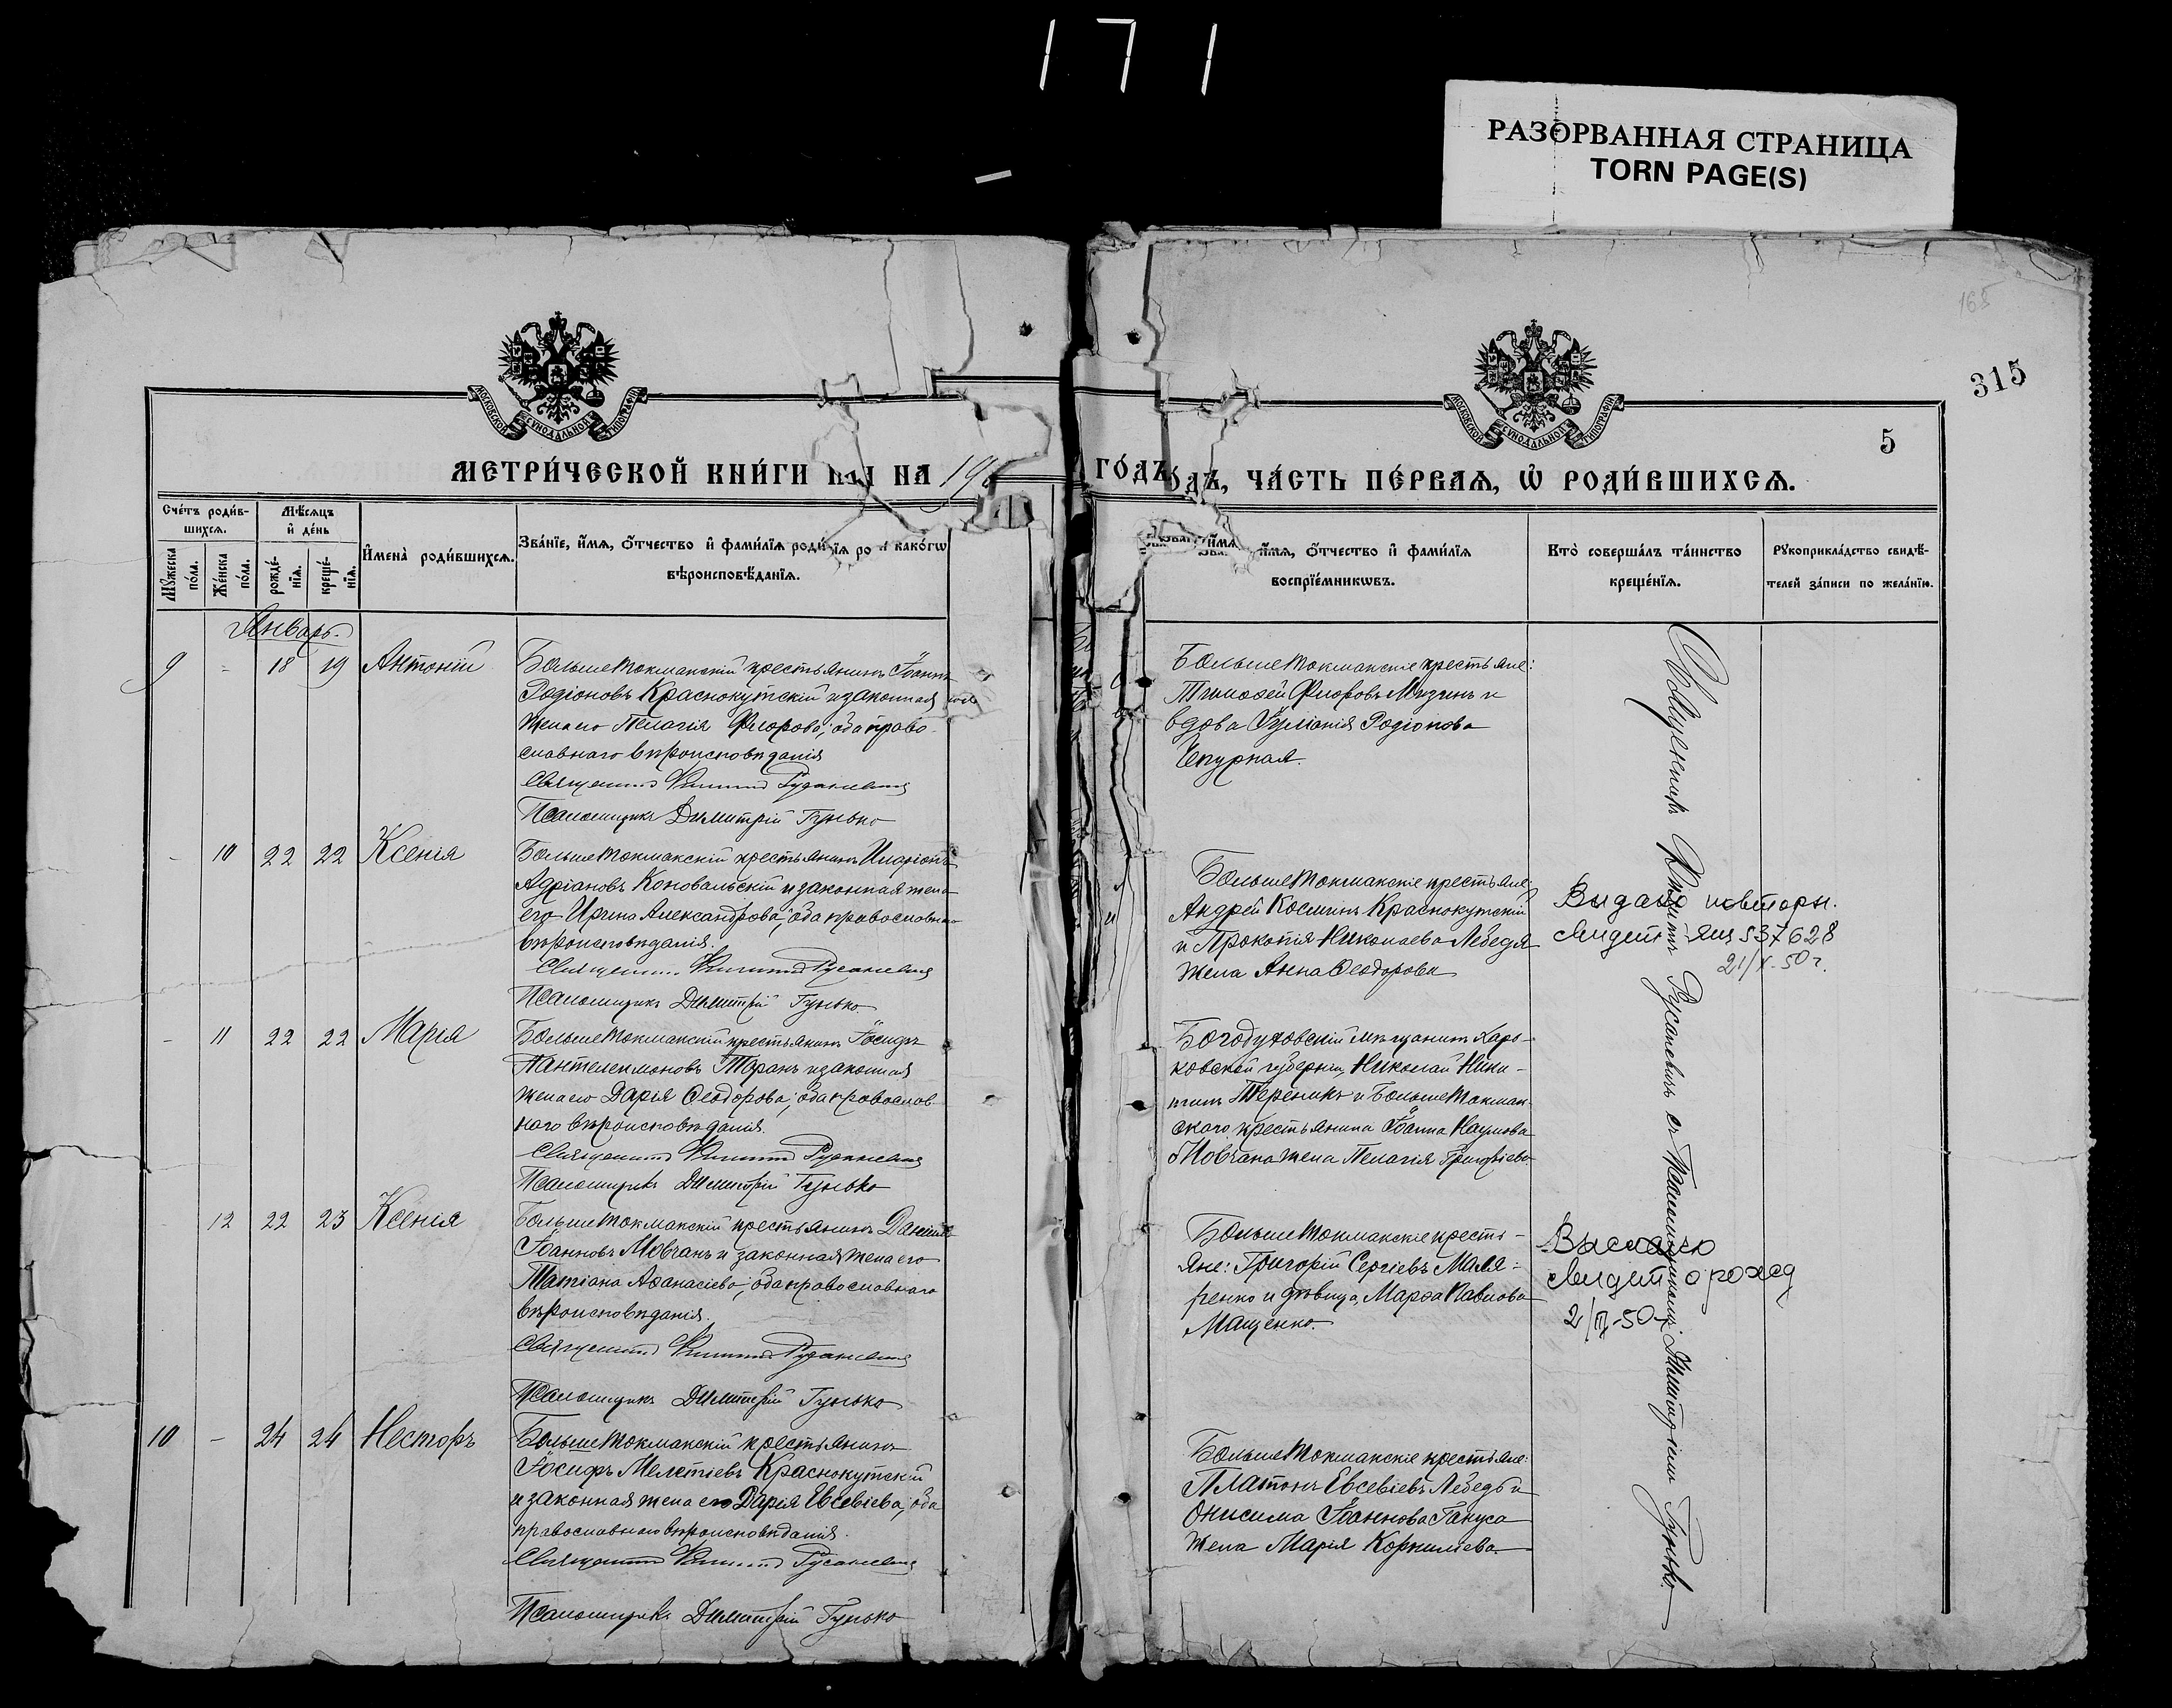 171
РАЗОРВАННАЯ СТРАНИЦА
TORN PAGE(S)
165
315
5
МОСКОВСКОЙ СѴНОДАЛЬНОЙ ТИПОГРАФІИ
МОСКОВСКОЙ СѴНОДАЛЬНОЙ ТИПОГРАФІИ
МЕТРИ́ЧЕСКОЙ КНИ́ГИ НА 19
ГО́ДЪ, ЧА́СТЬ ПЕ́РВАѦ, Ѽ РОДИ́ВШИХСѦ.
Сче́тъ роди́в-
шихсѧ.
Мꙋжеска по́ла.
Же́нска по́ла.
Мѣ́сѧцъ
и҆ де́нь
рожде́-
нїѧ.
креще́-
нїѧ.
И҆мена̀ роди́вшихсѧ.
Зва́нїе, и҆́мѧ, ѻ҆́тчество и҆ фами́лїѧ роди́ и҆ како́гѡ
вѣроисповѣ́данїѧ.
и҆́мѧ, ѻ҆́тчество и҆ фами́лїѧ
воспрїе́мникѡвъ.
Кто̀ соверша́лъ та́инство
креще́нїѧ.
Рꙋкоприкла́дство свидѣ́-
телей за́писи по жела́нїю.
Январь.
9 - 18 19 Антоній
Большетокмакскій крестьянинъ Іоаннъ
Родіоновъ Краснокутскій и законная
жена его Пелагія Флорова; оба право-
славнаго вѣроисповѣданія
Священникъ Филиппъ Русаневичъ
Псаломщикъ Димитрій Гунько
Большетокмакскіе крестьяне:
Тимоѳей Флоровъ Мизинъ и
вдова Іуліанія Родіонова
Чепурная.
- 10 22 22 Ксенія
Большетокмакскій крестьянинъ Иларіонъ
Адріановъ Коновальскій и законная жена
его Ирина Александрова; оба православнаго
вѣроисповѣданія.
Священникъ Филиппъ Русаневичъ
Псаломщикъ Димитрій Гунько
Большетокмакскіе крестьяне:
Андрей Косминъ Краснокутскій
и Прокопія Николаева Лебедя
жена Анна Ѳеодорова
Видано повторн.
свидет 537628
21/X-50 г.
- 11 22 22 Марія
Большетокмакскій крестьянинъ Іосифъ
Пантелеимоновъ Таранъ и законная
жена его Дарія Ѳеодорова; оба православ-
наго вѣроисповѣданія.
Священникъ Филиппъ Русаневичъ
Псаломщикъ Димитрій Гунько
Богодуховскій мѣщанинъ Харь-
ковской губерніи, Николай Ники-
тинъ и Большетокмак-
скаго крестьянина Іоанна Наумова
Мовчана жена Пелагія Григоріева.
- 12 22 23 Ксенія
Большетокмакскій крестьянинъ Даніилъ
Іоанновъ Мовчанъ и законная жена его
Татіана Аѳанасіева; оба православнаго
вѣроисповѣданія.
Священникъ Филиппъ Русаневичъ
Псаломщикъ Димитрій Гунько
Большетокмакскіе кресть-
яне: Григорій Сергіевъ Маля-
ренко и дѣвица, Марѳа Павлова
Мащенко.
Выслано
свидет о рожед
2/III-50
10 - 24 24 Несторъ
Большетокмакскій крестьянинъ
Іосифъ Мелетіевъ Краснокутскій
и законная жена его Дарія Евсевіева; оба
православнаго вѣроисповѣданія.
Священникъ Филиппъ Русаневичъ
Псаломщикъ Димитрій Гунько
Большетокмакскіе крестьяне:
Платонъ Евсевіевъ Лебедь и
Онисима Іоаннова Гануса
жена Марія Корниліева.
Священникъ Филиппъ Русаневичъ съ Псаломщикомъ Димитріемъ Гунько.